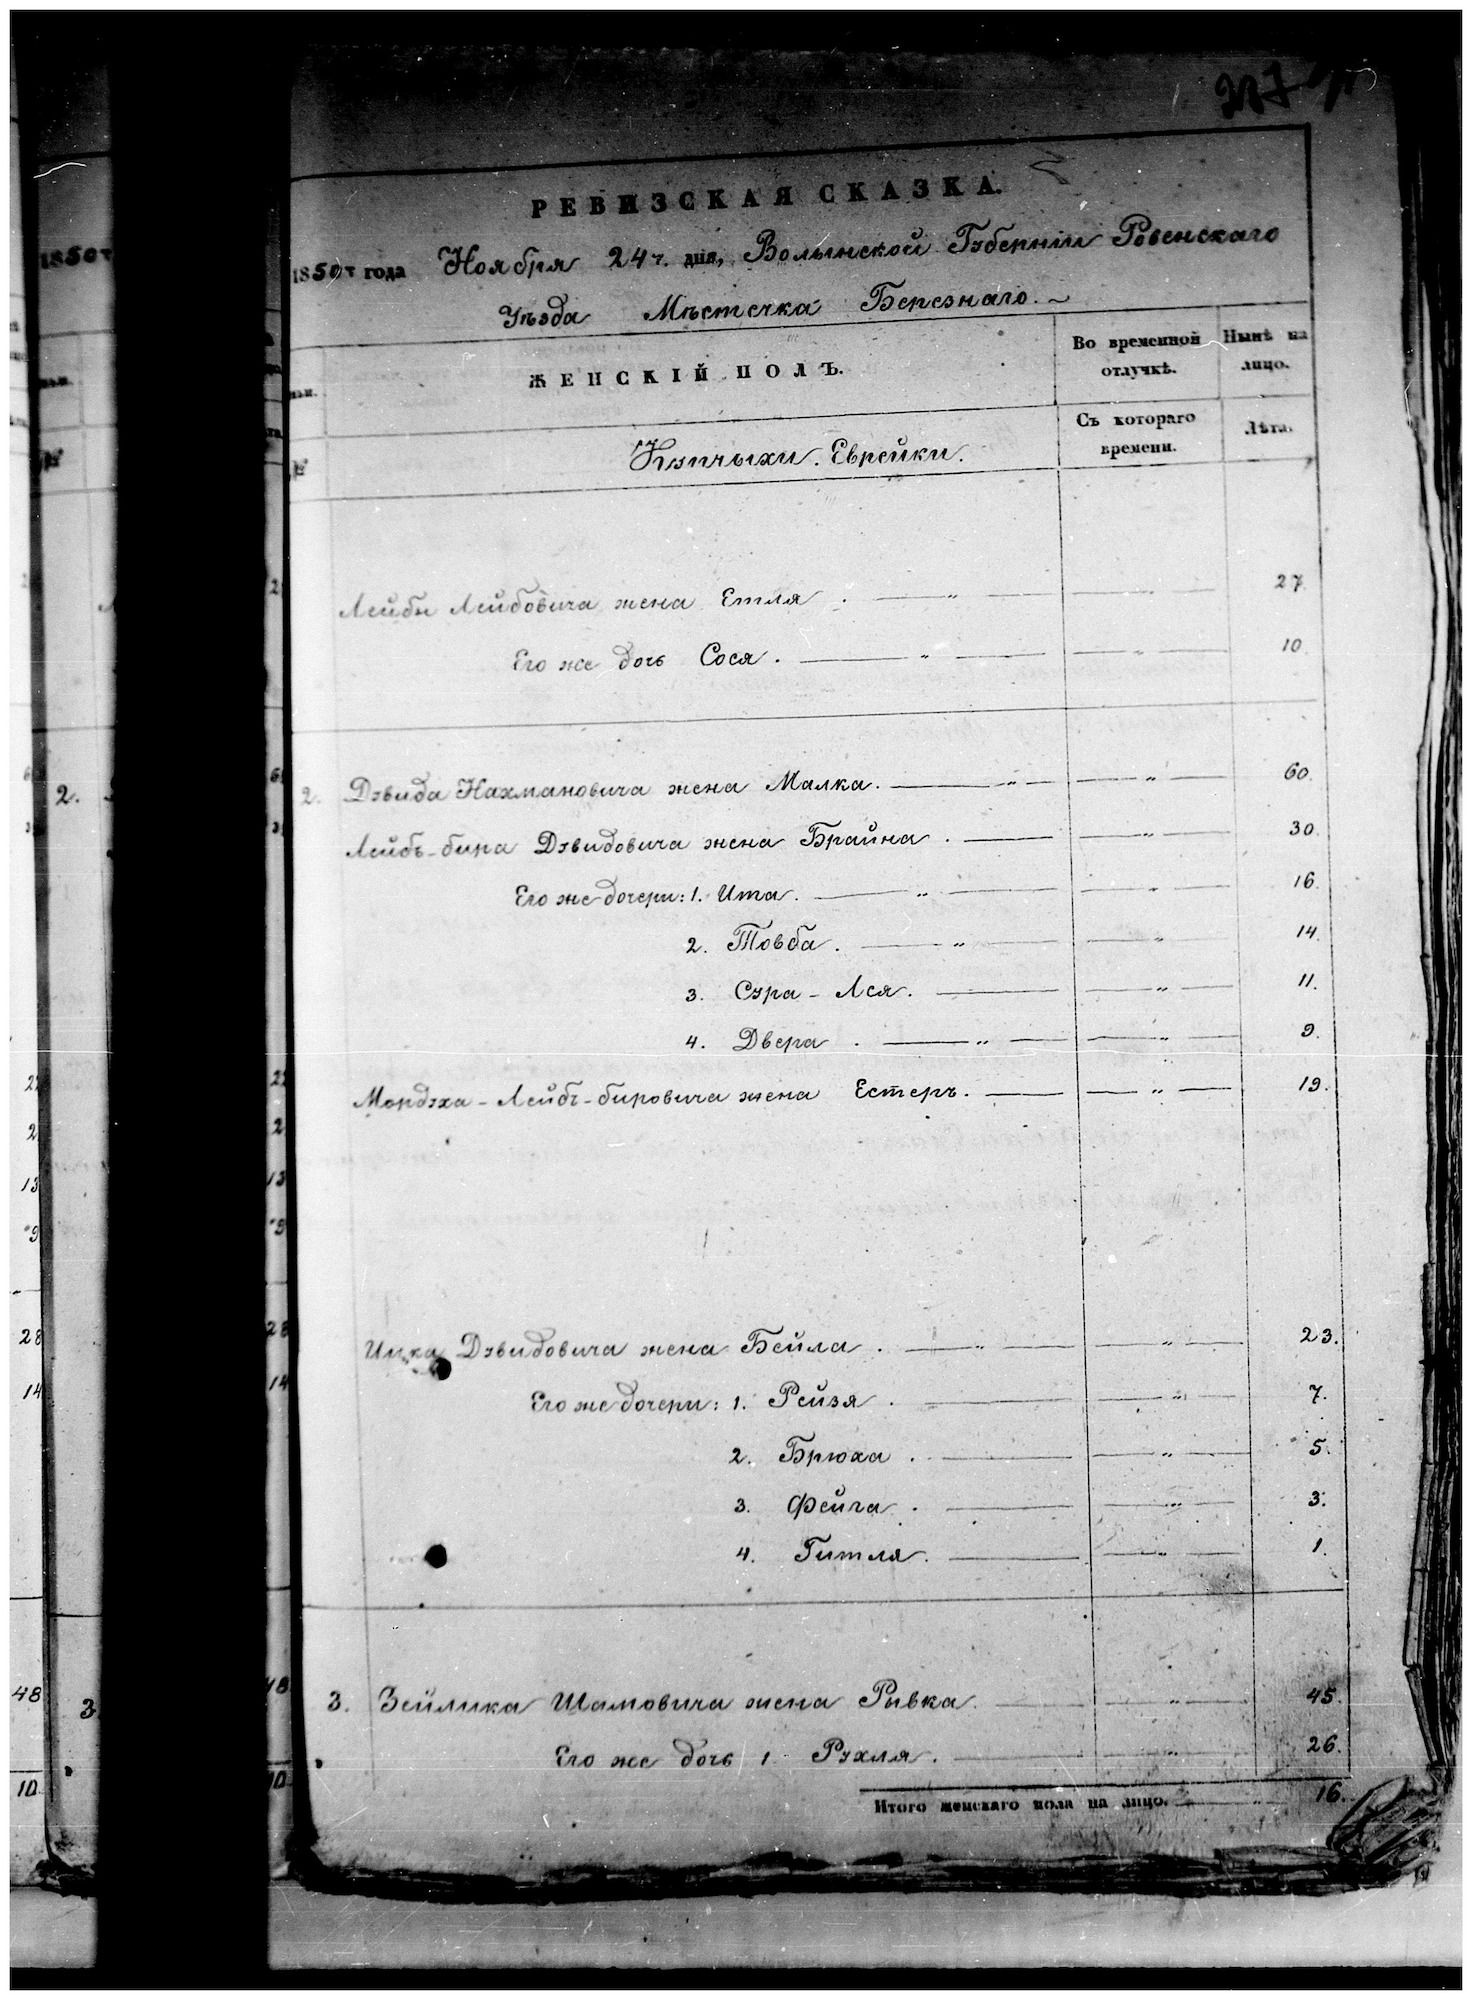 РЕВИЗСКАЯ СКАЗКА.
1850 г года Ноября 24 г. дня, Волынской Губерніи Ровенскаго
Уѣзда Мѣстечка Березнаго.
ЖЕНСКІЙ ПОЛЪ.
Во временной отлучкѣ.
Нынѣ на лицо.
Купчыхи. Еврейки.
Съ котораго времени.
Лѣта.
Лейбы Лейбовича жена Етля . — " — — 27.
Его же дочь Сося . — " — — " — 10.
2. Дэвида Нахмановича жена Малка. — " — — " — 60.
Лейбъ-бира Дэвидовича жена Брайна . — — " — 30.
Его же дочери: 1. Ита. — " — — " — 16.
2. Товба . — " — — " — 14.
3. Сура - Лея. — — " — 11.
4. Двера . — " — — " — 9.
Мордэха - Лейбъ-бировича жена Естеръ. — — " — 19.
Ицка Дэвидовича жена Бейла . — " — — " — 23.
Его же дочери: 1. Рейзя . — — " — 7.
2. Брюха . — — " — 5.
3. Фейга . — — " — 3.
4. Гитля. — — " — 1.
3. Зейлика Шамовича жена Рывка. — — " — 45.
Его же дочь 1. Рухля . — — " — 26.
Итого женскаго пола на лицо. — 16.